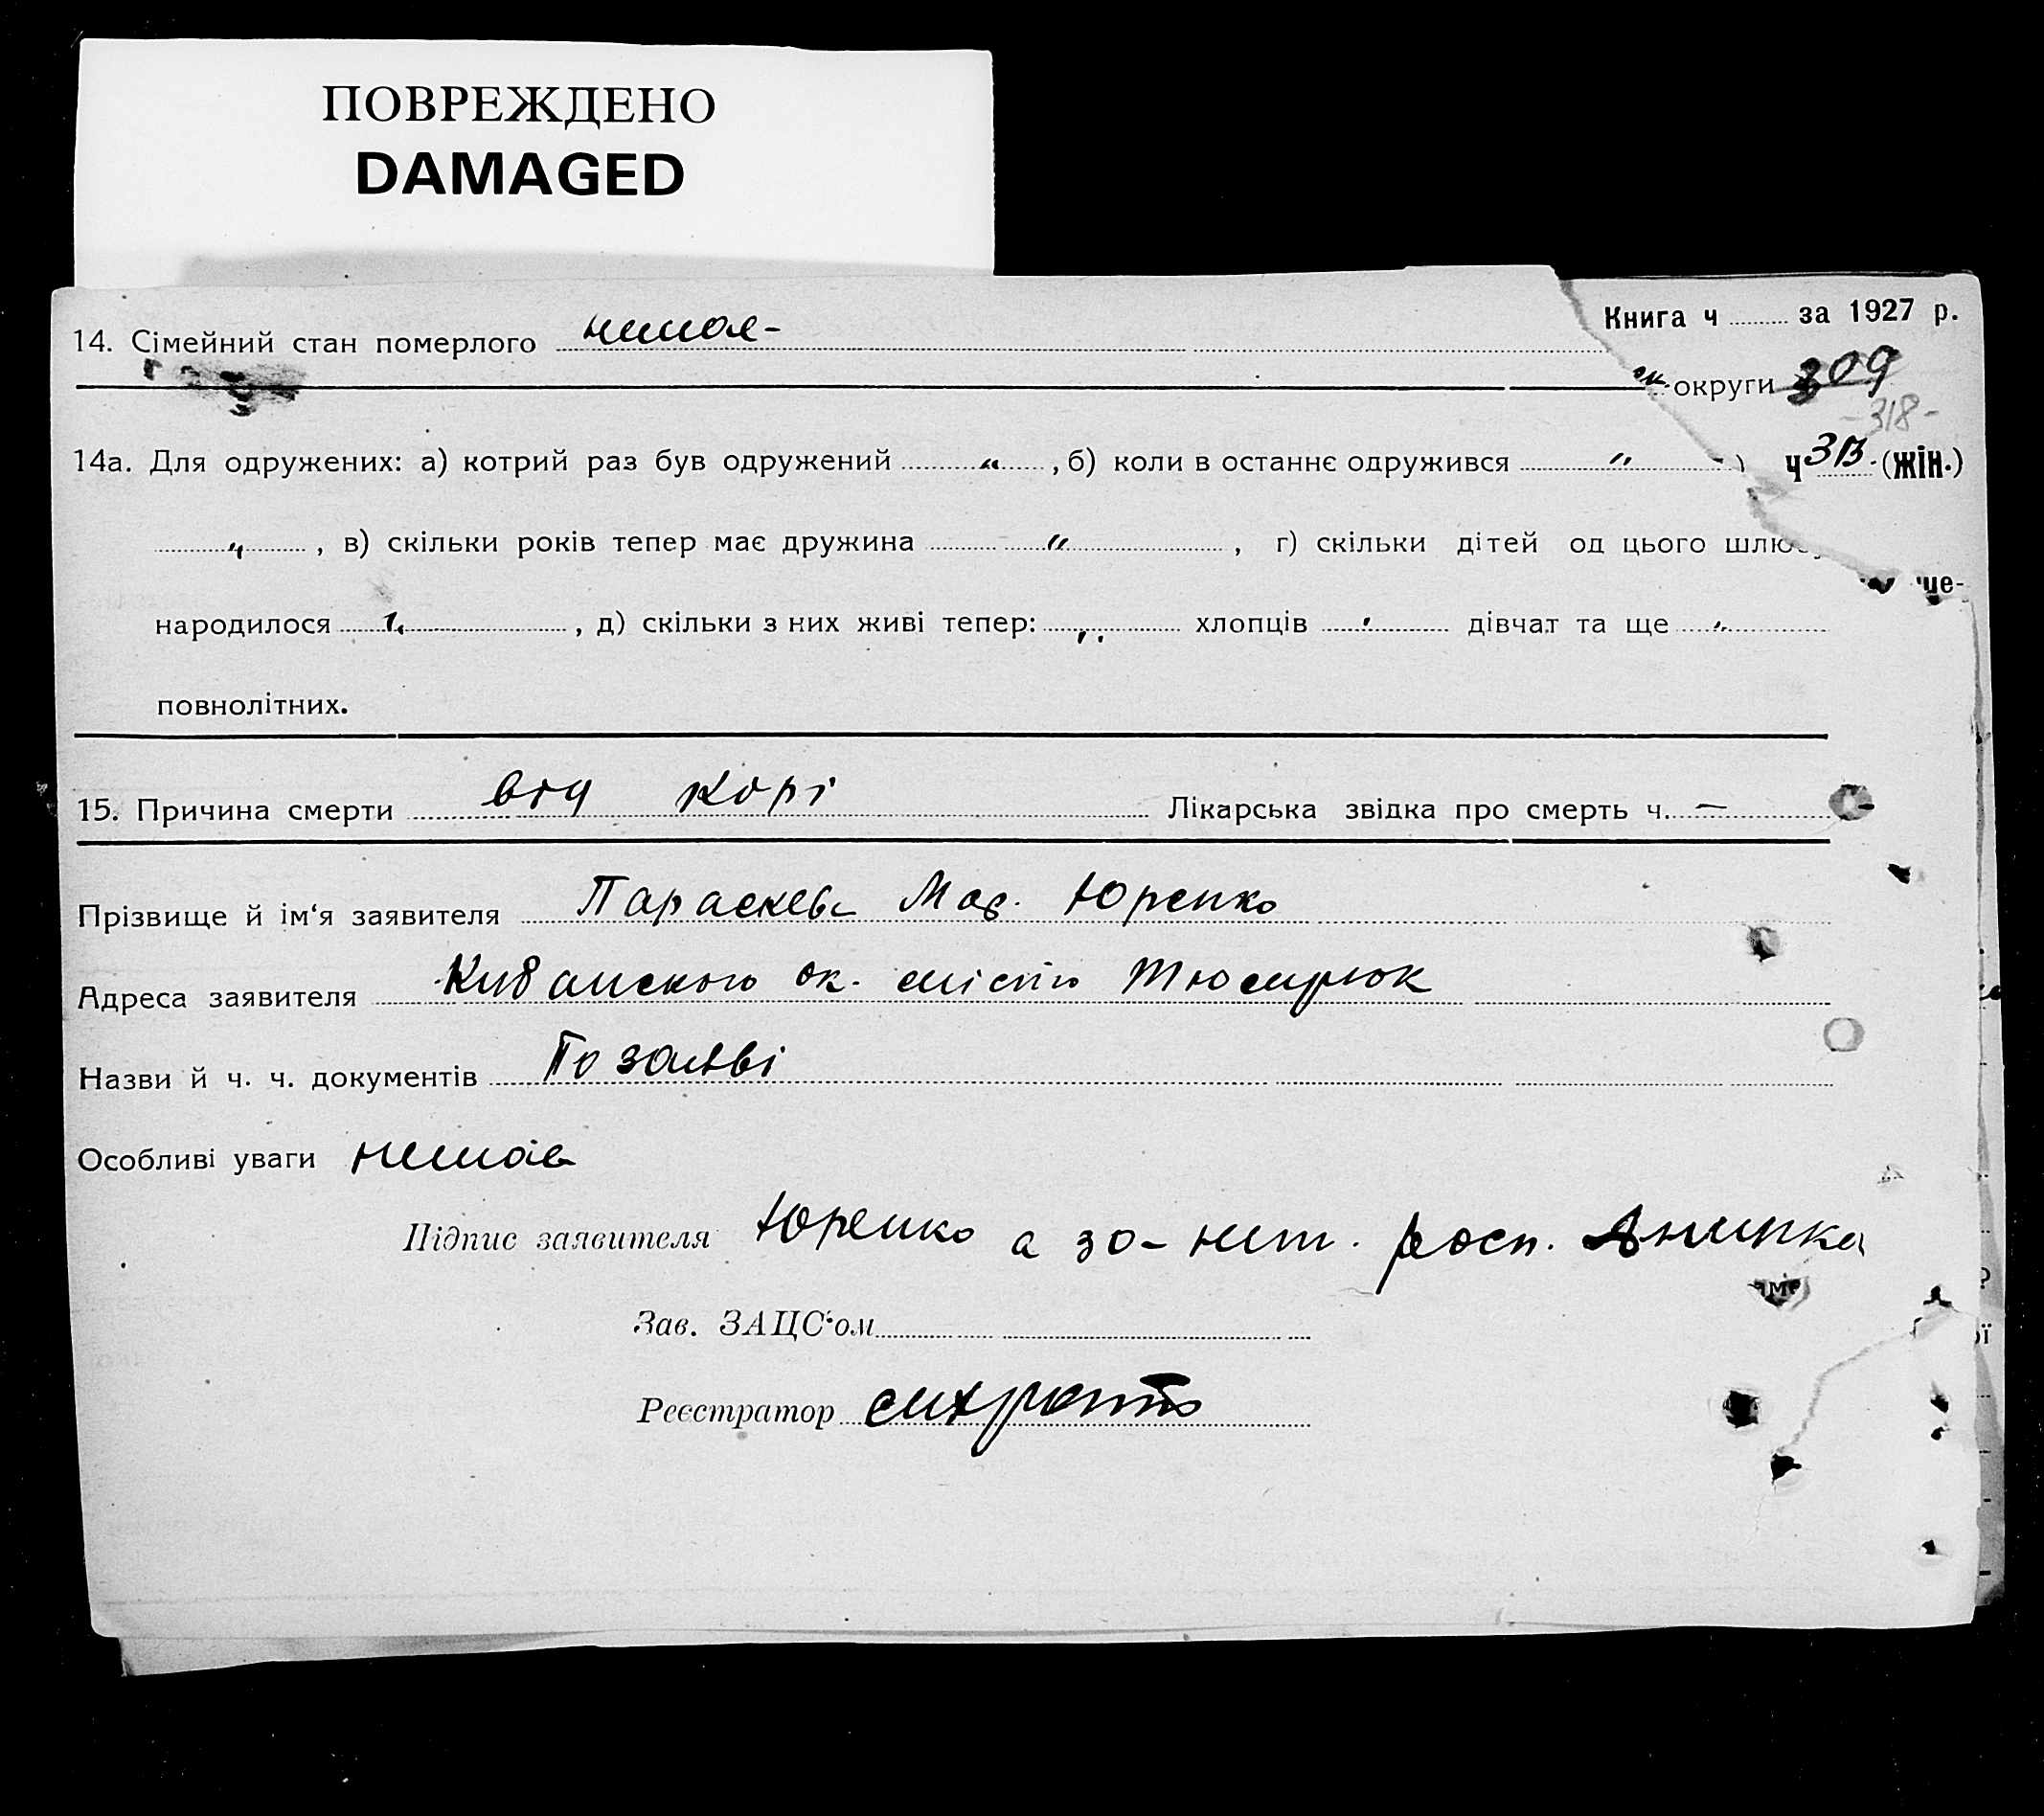 ПОВРЕЖДЕНО
DAMAGED
Книга ч за 1927 р.
14. Сімейний стан померлого немає -
округи 309
- 318 -
14а. Для одружених: а) котрий раз був одружений " , б) коли в останнє одружився " ч 313. (жін.)
" , в) скільки років тепер має дружина " , г) скільки дітей од цього шлюбу
народилося " , д) скільки з них живі тепер: " хлопців " дівчат та ще "
повнолітних.
15. Причина смерти від корі Лікарська звідка про смерть ч. —
Прізвище й ім'я заявителя Параскева Юренко
Адреса заявителя Кубанського ок. місто Темрюк
Назви й ч. ч. документів По заяві
Особливі уваги немає
Підпис заявителя Юренко а за - розп.
Зав. ЗАЦС'ом
Реєстратор